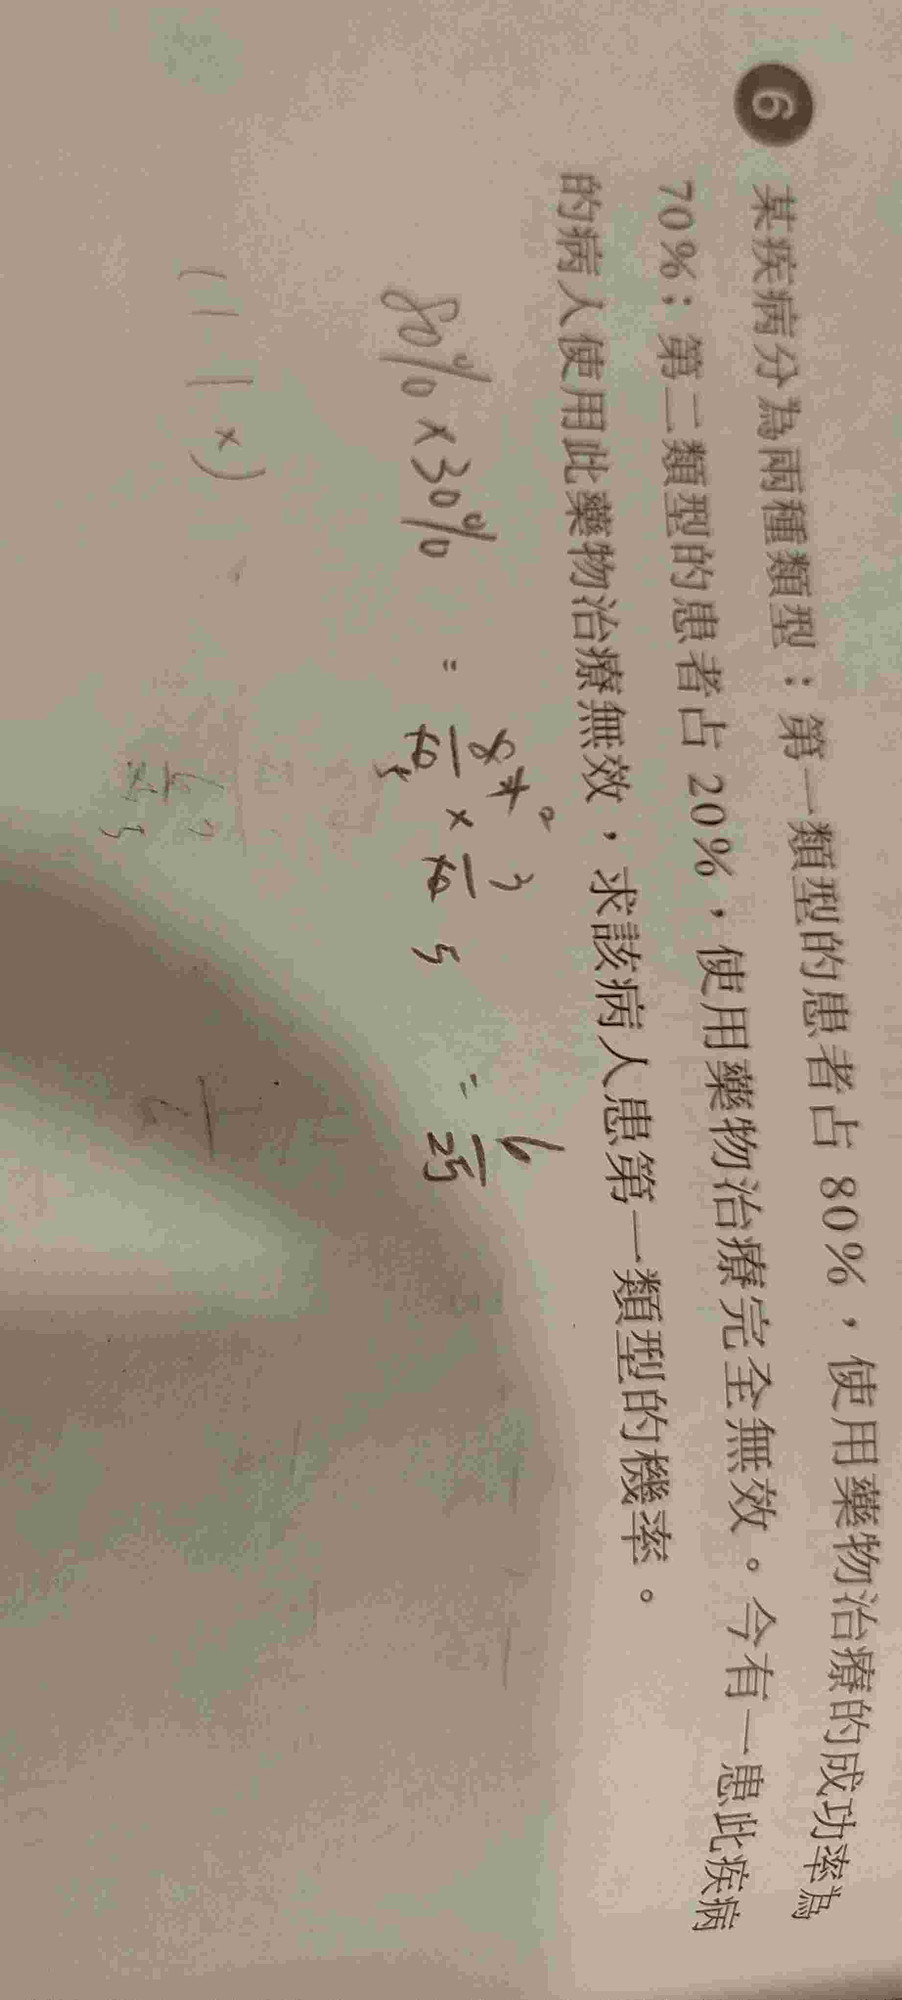 6 某疾病分為兩種類型：第一類型的患者占 80%，使用藥物治療的成功率為
70%；第二類型的患者占 20%，使用藥物治療完全無效。今有一患此疾病
的病人使用此藥物治療無效，求該病人患第一類型的機率。
80% × 30% = 8/10 × 3/10 = 6/25